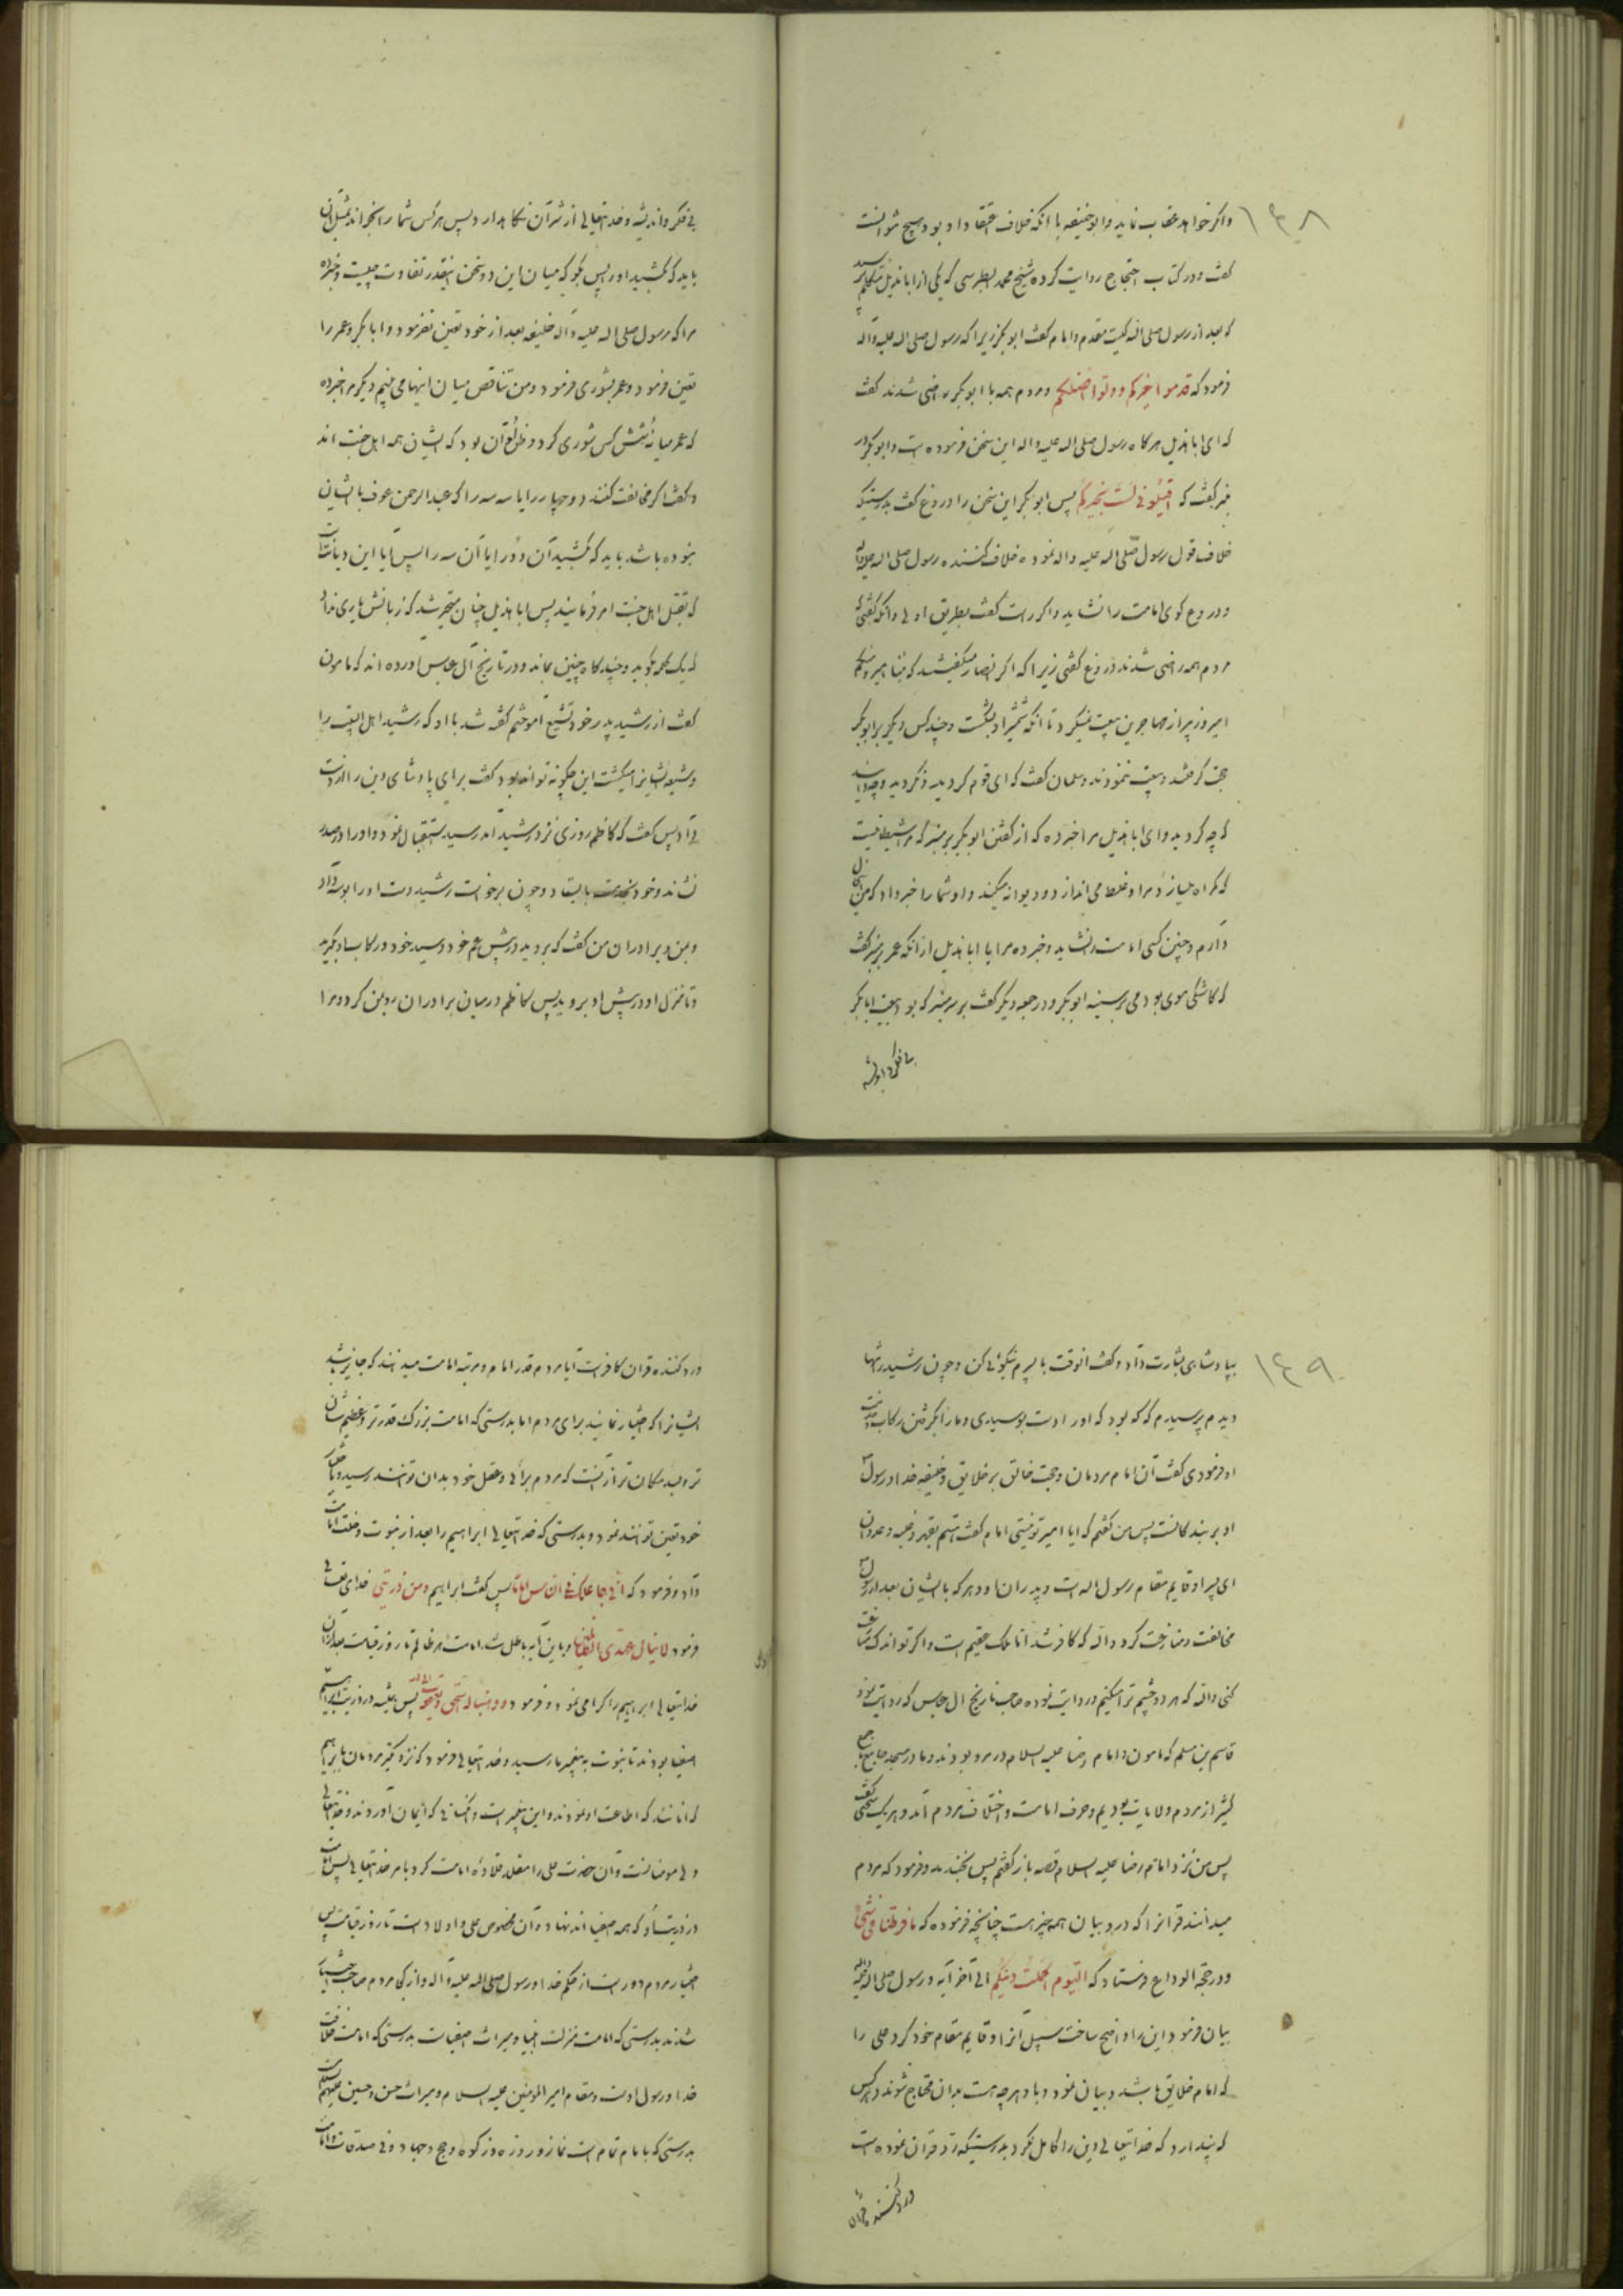 ۱۴۸
واکر خواهد عقاب نماید و ابوحنیفه با انکه خلاف اعتقاد او بود هیچ نتوانست
کفت و در کتاب احتجاج روایت کرده شیخ محمد الطبرسی که یکی از ابا هذیل متکلم پرسید
که بعد از رسول صلی اله کیست مقدم و امام کفت ابو بکر زیرا که رسول صلی اله علیه و آله
فرمود که قدموا خیرکم و ولوا افضلکم و مردم همه با ابو بکر راضی شدند کفت
که ای ابا هذیل هر کاه رسول صلی اله علیه و اله این سخن فرموده است و ابو بکر در
منبر کفت که اقیلونی لست بخیرکم پس ابو بکر این سخن را دروغ کفت بدرستیکه
خلاف قول رسول صلی اله علیه و اله نموده خلاف کننده رسول صلی اله علیه و اله
و دروغ کوی امامت را نشاید و اکر راست کفت بطریق اولی و انکه کفتی که
مردم همه راضی شدند دروغ کفتی زیرا که اکر انصار میکفتند که منا امیر و منکم
امیر و زبیر از مهاجرین بیعت نمیکرد تا انکه شمشیر او بشکست و چند کس دیکر بر ابو بکر
حجت کرفتند و بیعت ننمودند و سلمان کفت که ای قوم کردید و نکردید و چه دانید
که چه کردید و ای ابا هذیل مرا خبر ده که از کفتن ابو بکر بر منبر که مرا شیطانیست
که کمراه میسازد مرا و غلط می اندازد و دیوانه میکند و او شما را خبر داد که من این حال
دارم و چنین کسی امامت را نشاید و خبر ده مرا یا ابا هذیل از انکه عمر بر منبر کفت
که کاشکی موی بودمی بر سینه ابو بکر و در جمعه دیکر کفت بر سر منبر که بود بیعت ابا بکر
بی فکر و اندیشه
بی فکر و اندیشه و خدایتعالی از شر آن نکاهدارد پس هر کس شما را بخواند بمثل ان
باید که بکشید او را پس بکو که میان این دو سخن اینقدر تفاوت چیست و خبر ده
مرا که رسول صلی اله علیه و آله خلیفه بعد از خود تعین نفرمود و ابا بکر و عمر را
تعین فرمود و عمر بشوری فرمود و من تناقص میان اینها می بینم دیکر مرا خبر ده
که عمر میانه شش کس شوری کرد و ظن او آن بود که ایشان همه اهل جنت اند
و کفت اکر مخالفت کنند دو چهار را یا سه سه را که عبد الرحمن عوف با ایشان
نبوده باشد باید که بکشید آن دو را یا آن سه را پس آیا این دیانت است
که بقتل اهل جنت امر فرمایند پس ابا هذیل چنان متحیر شد که زبانش یاری نداد
که یک کلمه بکوید و چند کاه چنین بماند و در تاریخ آل عباس اورده اند که مامون
کفت از رشید پدر خود تشیع آموختم کفته شد با او که رشید اهل البیت را
و شیعه ایشانرا میکشت این چکونه تواند بود کفت برای پادشاهی و این را از دست
نداد پس کفت که کاظم روزی نزد رشید آمد رسید استقبال نمود و او را در صدر
نشاند و خود بخدمت بایستاد و چون برخواست رشید دست او را بوسه داد
و بمن و برادران من کفت که بروید در پیش عم خود و سید خود و رکاب او بکیرید
و تا منزل او در پیش او بروید پس کاظم در میان برادران رو بمن کرد و مرا
۱۴۹
بپادشاهی بشارت داد و کفت انوقت با پسرم نیکوئی کن و چون رشید را تنها
دیدم پرسیدم که که بود که او را دست بوسیدی و ما را بکرفتن رکاب خدمت
او فرمودی کفت آن امام مردمان و حجت خالق بر خلایق و خلیفه خدا و رسول
او بر بندکانست پس من کفتم که ایا امیر تو نیستی امام کفت هستم بقهر و غلبه و عدوان
ای پسر او قایم مقام رسول اله است و پدران او و هر که با ایشان بعد از رسول
مخالفت و منازعت کرد واله که کافر شد اما ملک عقیم است و اکر تو اندک منازعت
کنی واله که هر دو چشم ترا میکنم و روایت نموده صاحب تاریخ ال عباس که روایت نمود
قاسم بن مسلم که مامون و امام رضا علیه السلام در مرو بودند و ما در مسجد جامع با جمع
کثیر از مردم ولایات بودیم و حرف امامت و اختلاف مردم آمد و هر یک سخنی کفتند
پس من نزد امام رضا علیه السلام قصه باز کفتم پس بخندید و فرمود که مردم
میدانند قرانرا که در و بیان همه چیز هست چنانچه فرموده که ما فرطنا من شئ
و در حجة الوداع فرستاد که الیوم اکملت دینکم الی آخر آیه و رسول صلی اله علیه و اله
بیان فرمود این را و واضح ساخت سبیل انرا و قایم مقام خود کرد علی را
که امام خلایق باشد و بیان نمود و با و هر چه هست بدان محتاج شوند و هر کس
که پندارد که خدایتعالی دین را کامل نکرد بدرستیکه رد قران نموده است
و رد کننده قران
و رد کننده قران کافر است آیا مردم قدر امام و مرتبه امامت میدانند که جایز باشد
ایشانرا که اختیار نمایند برای مردم اما بدرستی که امامت بزرک قدرتر و عظیم شان
تر و بلند مکان تر از آنست که مردم برای و عقل خود بدان توانند رسید و باختیار
خود تعین توانند نمود و بدرستی که خدایتعالی ابراهیم را بعد از نبوت و خلت امامت
داد و فرمود که انی جاعلک للناس اماما پس کفت ابراهیم و من ذریتی خدای تعالی
فرمود لا ینال عهدی الظالمین و باین آیه باطل شد امامت هر ظالم تا روز قیامت بعد از آن
خدایتعالی ابراهیم را کرامی نمود و فرمود و وهبنا له اسحق و یعقوب پس همیشه در ذریت ابراهیم
اصفیا بودند تا نبوت به پیغمبر ما رسید و خدایتعالی فرمود که نزدیکتر مردمان بابراهیم
که انانند که اطاعت او نمودند و این پیغمبر است و کسانی که ایمان آوردند و خدایتعالی
ولی مومنانست و آن حضرت علی را مقلد قلاده امامت کرد بامر خدایتعالی پس امامت
در ذریت او که همه اصفیا اند نهاد و آن مخصوص علی و اولاد است تا روز قیامت پس
اختیار مردم دور است از حکم خدا و رسول صلی اله علیه و آله و از کجا مردم صاحب اختیار
شدند بدرستی که امامت منزلت انبیا و میراث اصفیا است بدرستی که امامت خلافت
خدا و رسول اوست و مقام امیر المومنین علیه السلام و میراث حسن و حسین علیهم السلام
بدرستی که با امام تمام است نماز و روزه و زکوة و حج و جهاد و فی صدقات و امامت